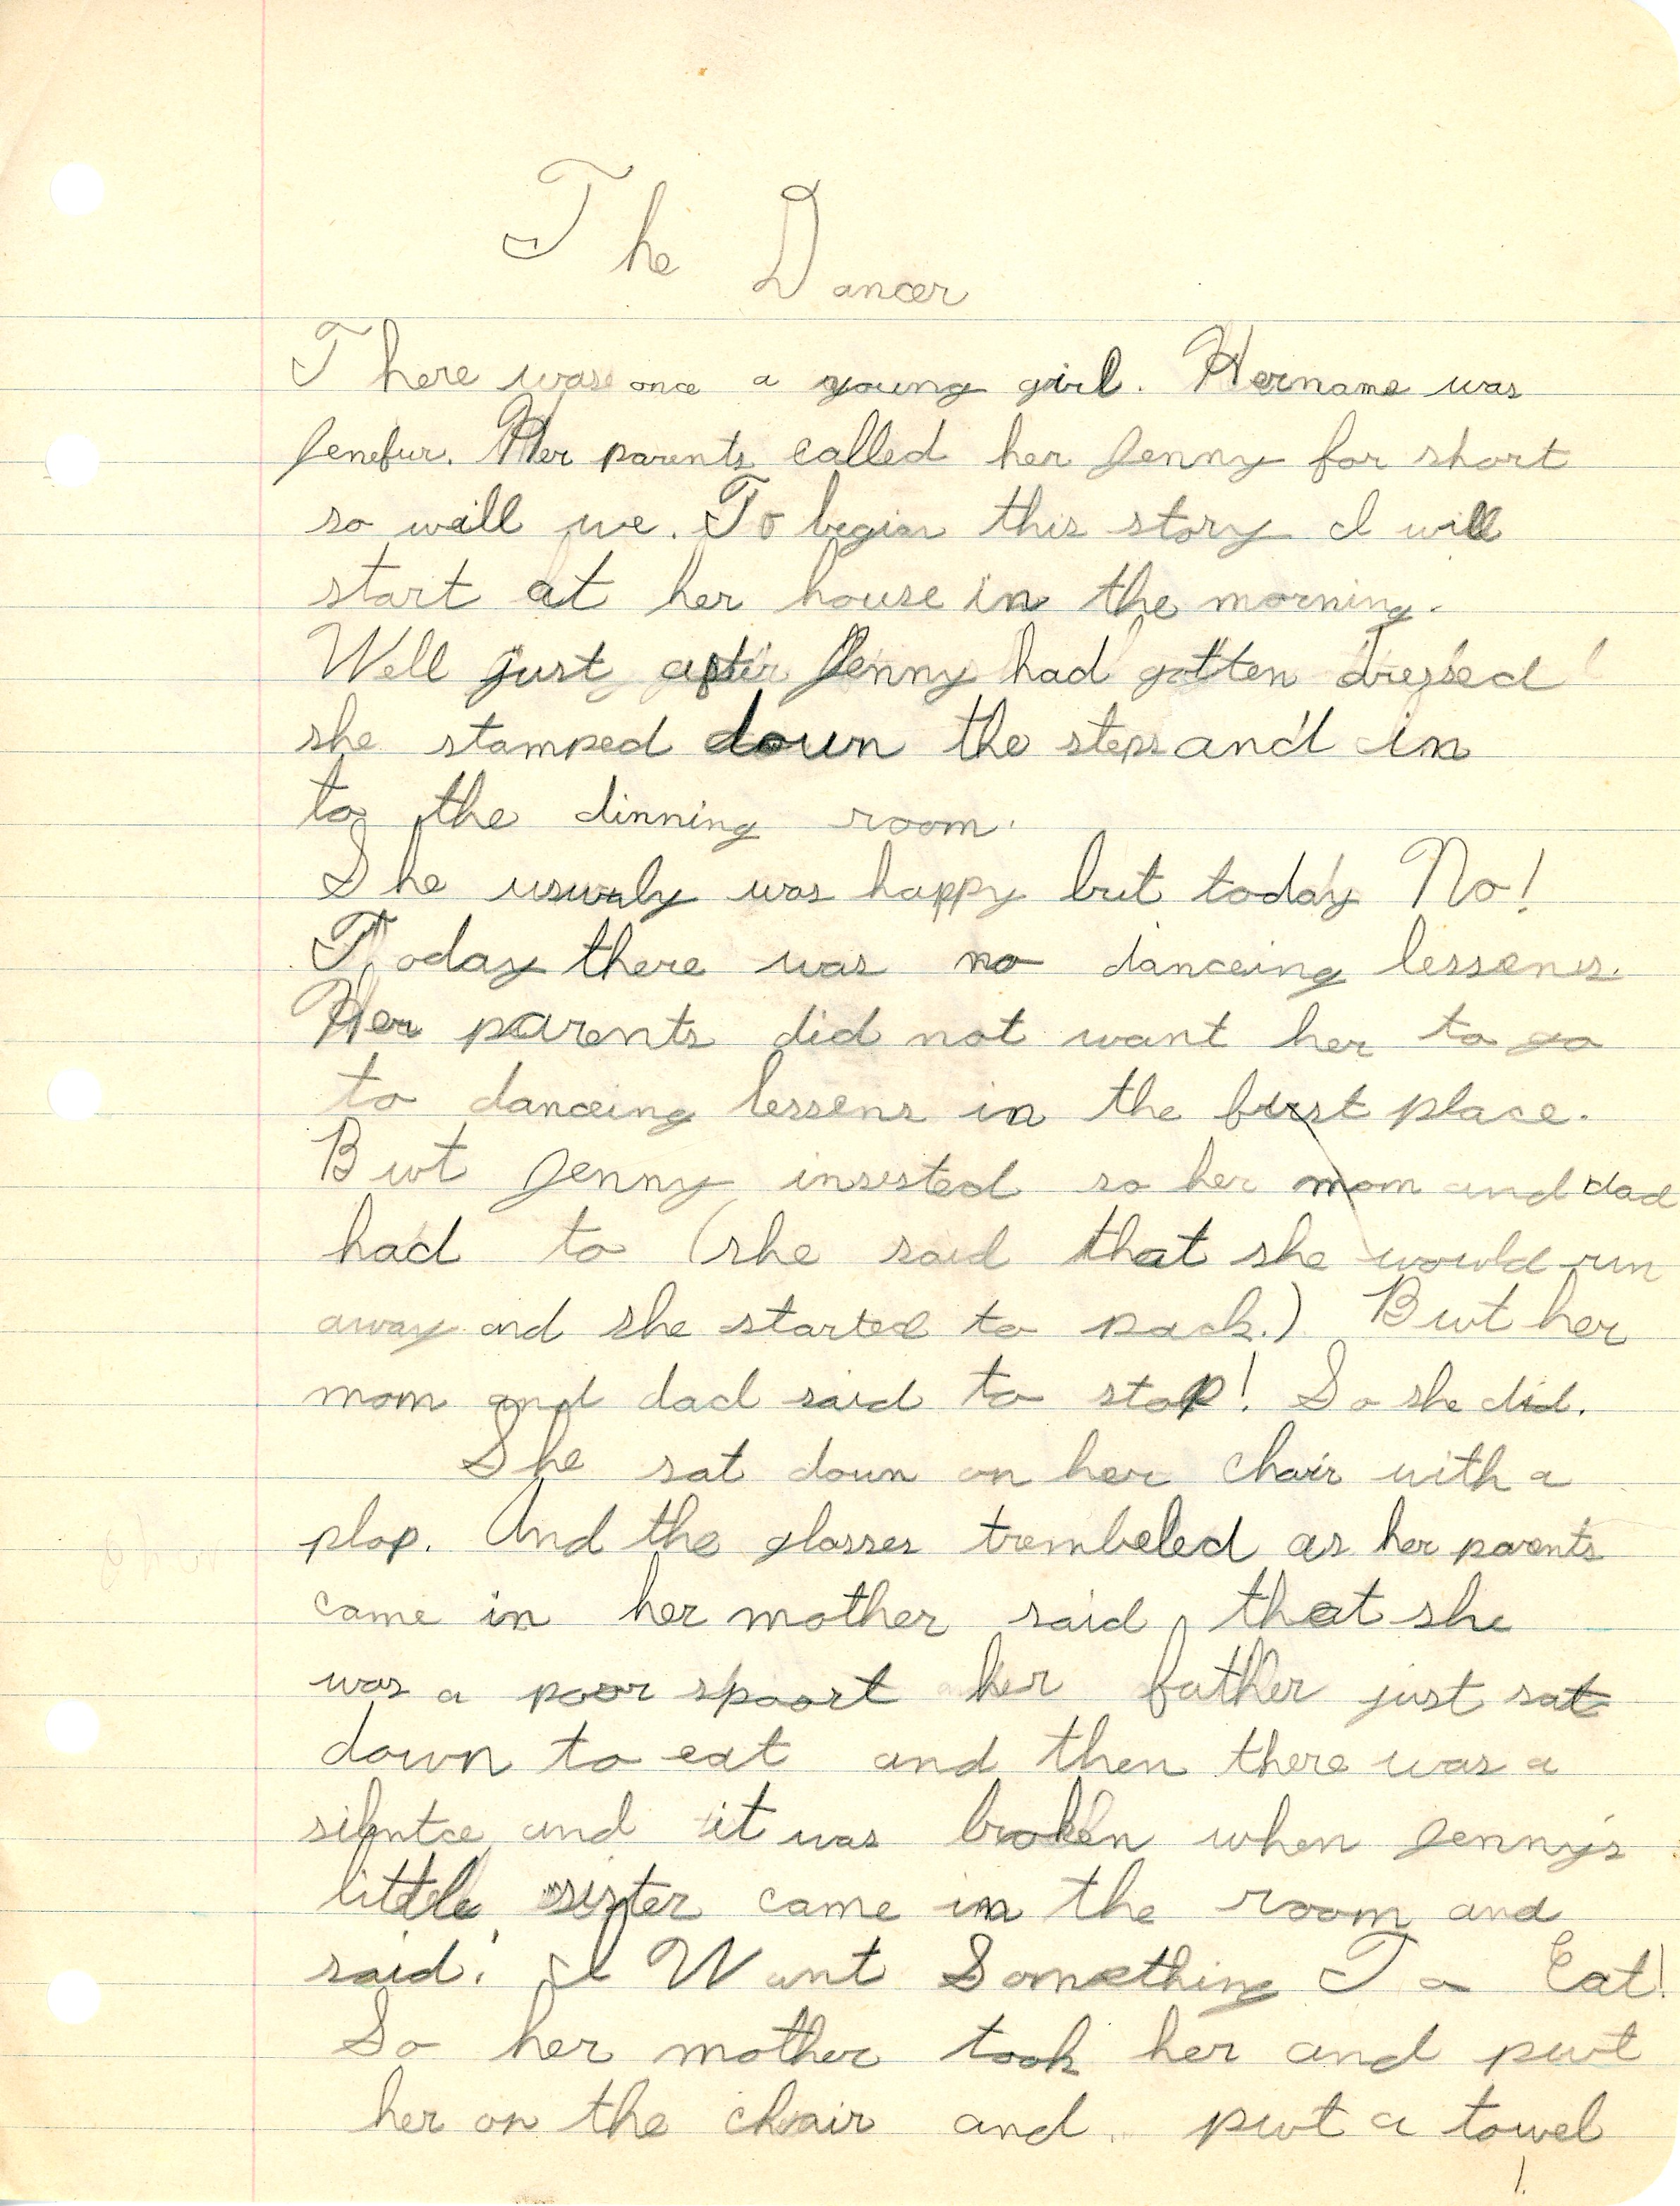 The Dancer
There was once a young girl. Her name was
Jenefur. Her parents called her Jenny for short
so will we. To begin this story I will
start at her house in the morning.
Well just after Jenny had gotten dressed
she stamped down the steps and in
to the dinning room.
She usualy was happy but today No!
Today there was no danceing lessens.
Her parents did not want her to go
to danceing lessens in the furst place.
But Jenny insisted so her mom and dad
had to (she said that she would run
away and she started to pack.) But her
mom and dad said to stop! So she did.
She sat down on her chair with a
plop. And the glasses trembeled as her parents
came in her mother said that she
was a poor spoort her father just sat
down to eat and then there was a
silentce and it was broken when Jenny's
little sister came in the room and
said: I Want Something To Eat!
So her mother took her and put
her on the chair and put a towel